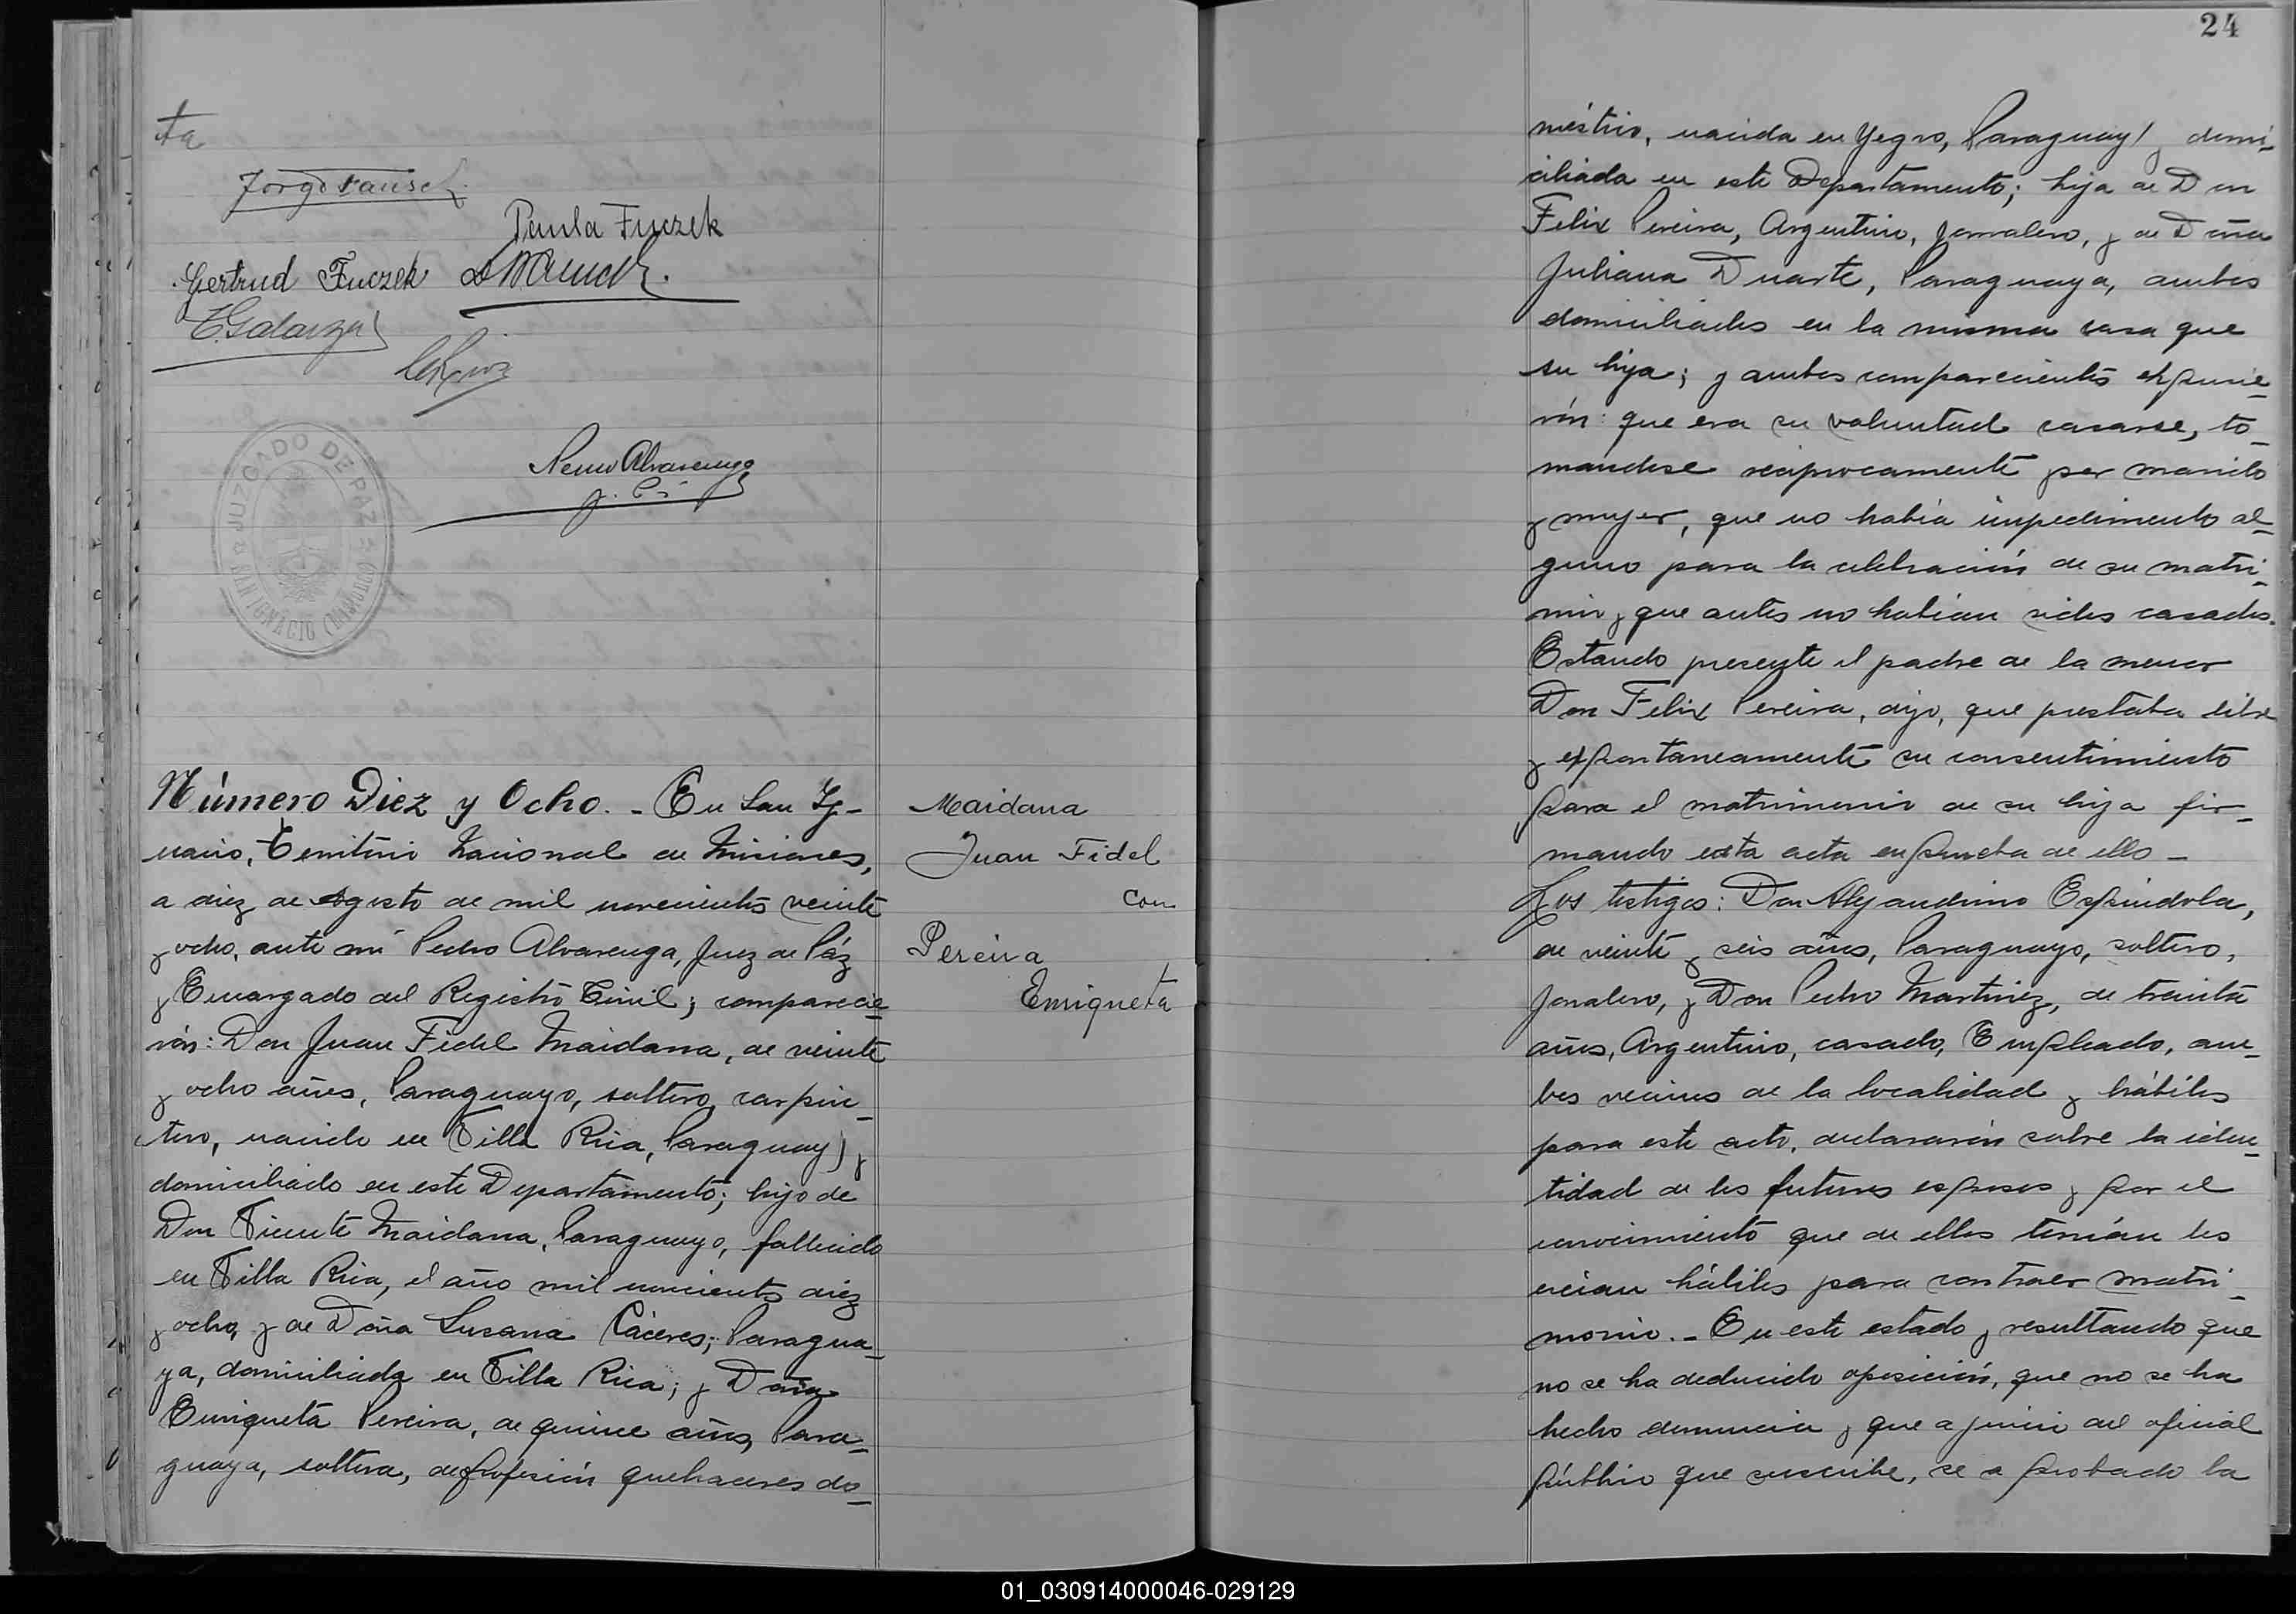 24
ta
Jorge Rausch
Paula Fuczek
Gertrud Fuczek
E Galarza
JUZGADO DE PAZ
SAN IGNACIO (MISIONES)
Número Diez y Ocho. - En San Ig-
nacio, Territorio Nacional de Misiones,
a diez de Agosto de mil novecientos veinte
y ocho, ante mi Pedro Alvarenga, Juez de Páz
y Encargado del Registro Civil; comparecie-
rón: Don Juan Fidel Maidana, de veinte
y ocho años, Paraguayo, soltero, carpin-
tero, nacido en Villa Rica, Paraguay) y
domiciliado en este Departamento; hijo de
Don Vicente Maidana, Paraguayo, fallecido
en Villa Rica, el año mil novecientos diez
y ocho, y de Doña Susana Cáceres; Paragua-
ya, domiciliada en Villa Rica; y Doña
Enriqueta Pereira, de quince años, Para-
guaya, soltera, de profesión quehaceres do-
Maidana
Juan Fidel
con
Pereira
Enriqueta
méstico, nacida en Yegro, Paraguay) y domi-
ciliada en este Departamento; hija de Don
Felix Pereira, Argentino, jornalero, y de Doña
Juliana Duarte, Paraguaya, ambos
domiciliados en la misma casa que
su hija; y ambos comparecientes expusie-
rón: que era su voluntad casarse, to-
mandose reciprocamente por marido
y mujer, que no había impedimento al-
guno para la celebración de su matri-
mio y que antes no habian sidos casados.
Estando presente el padre de la menor
Don Felix Pereira, dijo, que prestaba libre
y expontaneamente su consentimiento
para el matrimonio de su hija fir-
mando esta acta en prueba de ello -
Los testigos: Don Alejandrino Espindola,
de veinte y seis años, Paraguayo, soltero,
Jonalero, y Don Pedro Martinez, de treinta
años, Argentino, casado, Empleado, am-
bos vecinos de la localidad y hábiles
para este acto, declararón sobre la iden-
tidad de los futuros esposos y por el
conocimiento que de ellos tenían los
crcian hábiles para contraer matri-
monio. - En este estado y resultando que
no se ha deducido oposición, que no se ha
hecho denuncia y que a juicio del oficial
público que suscribe, se a probado la
01_030914000046-029129